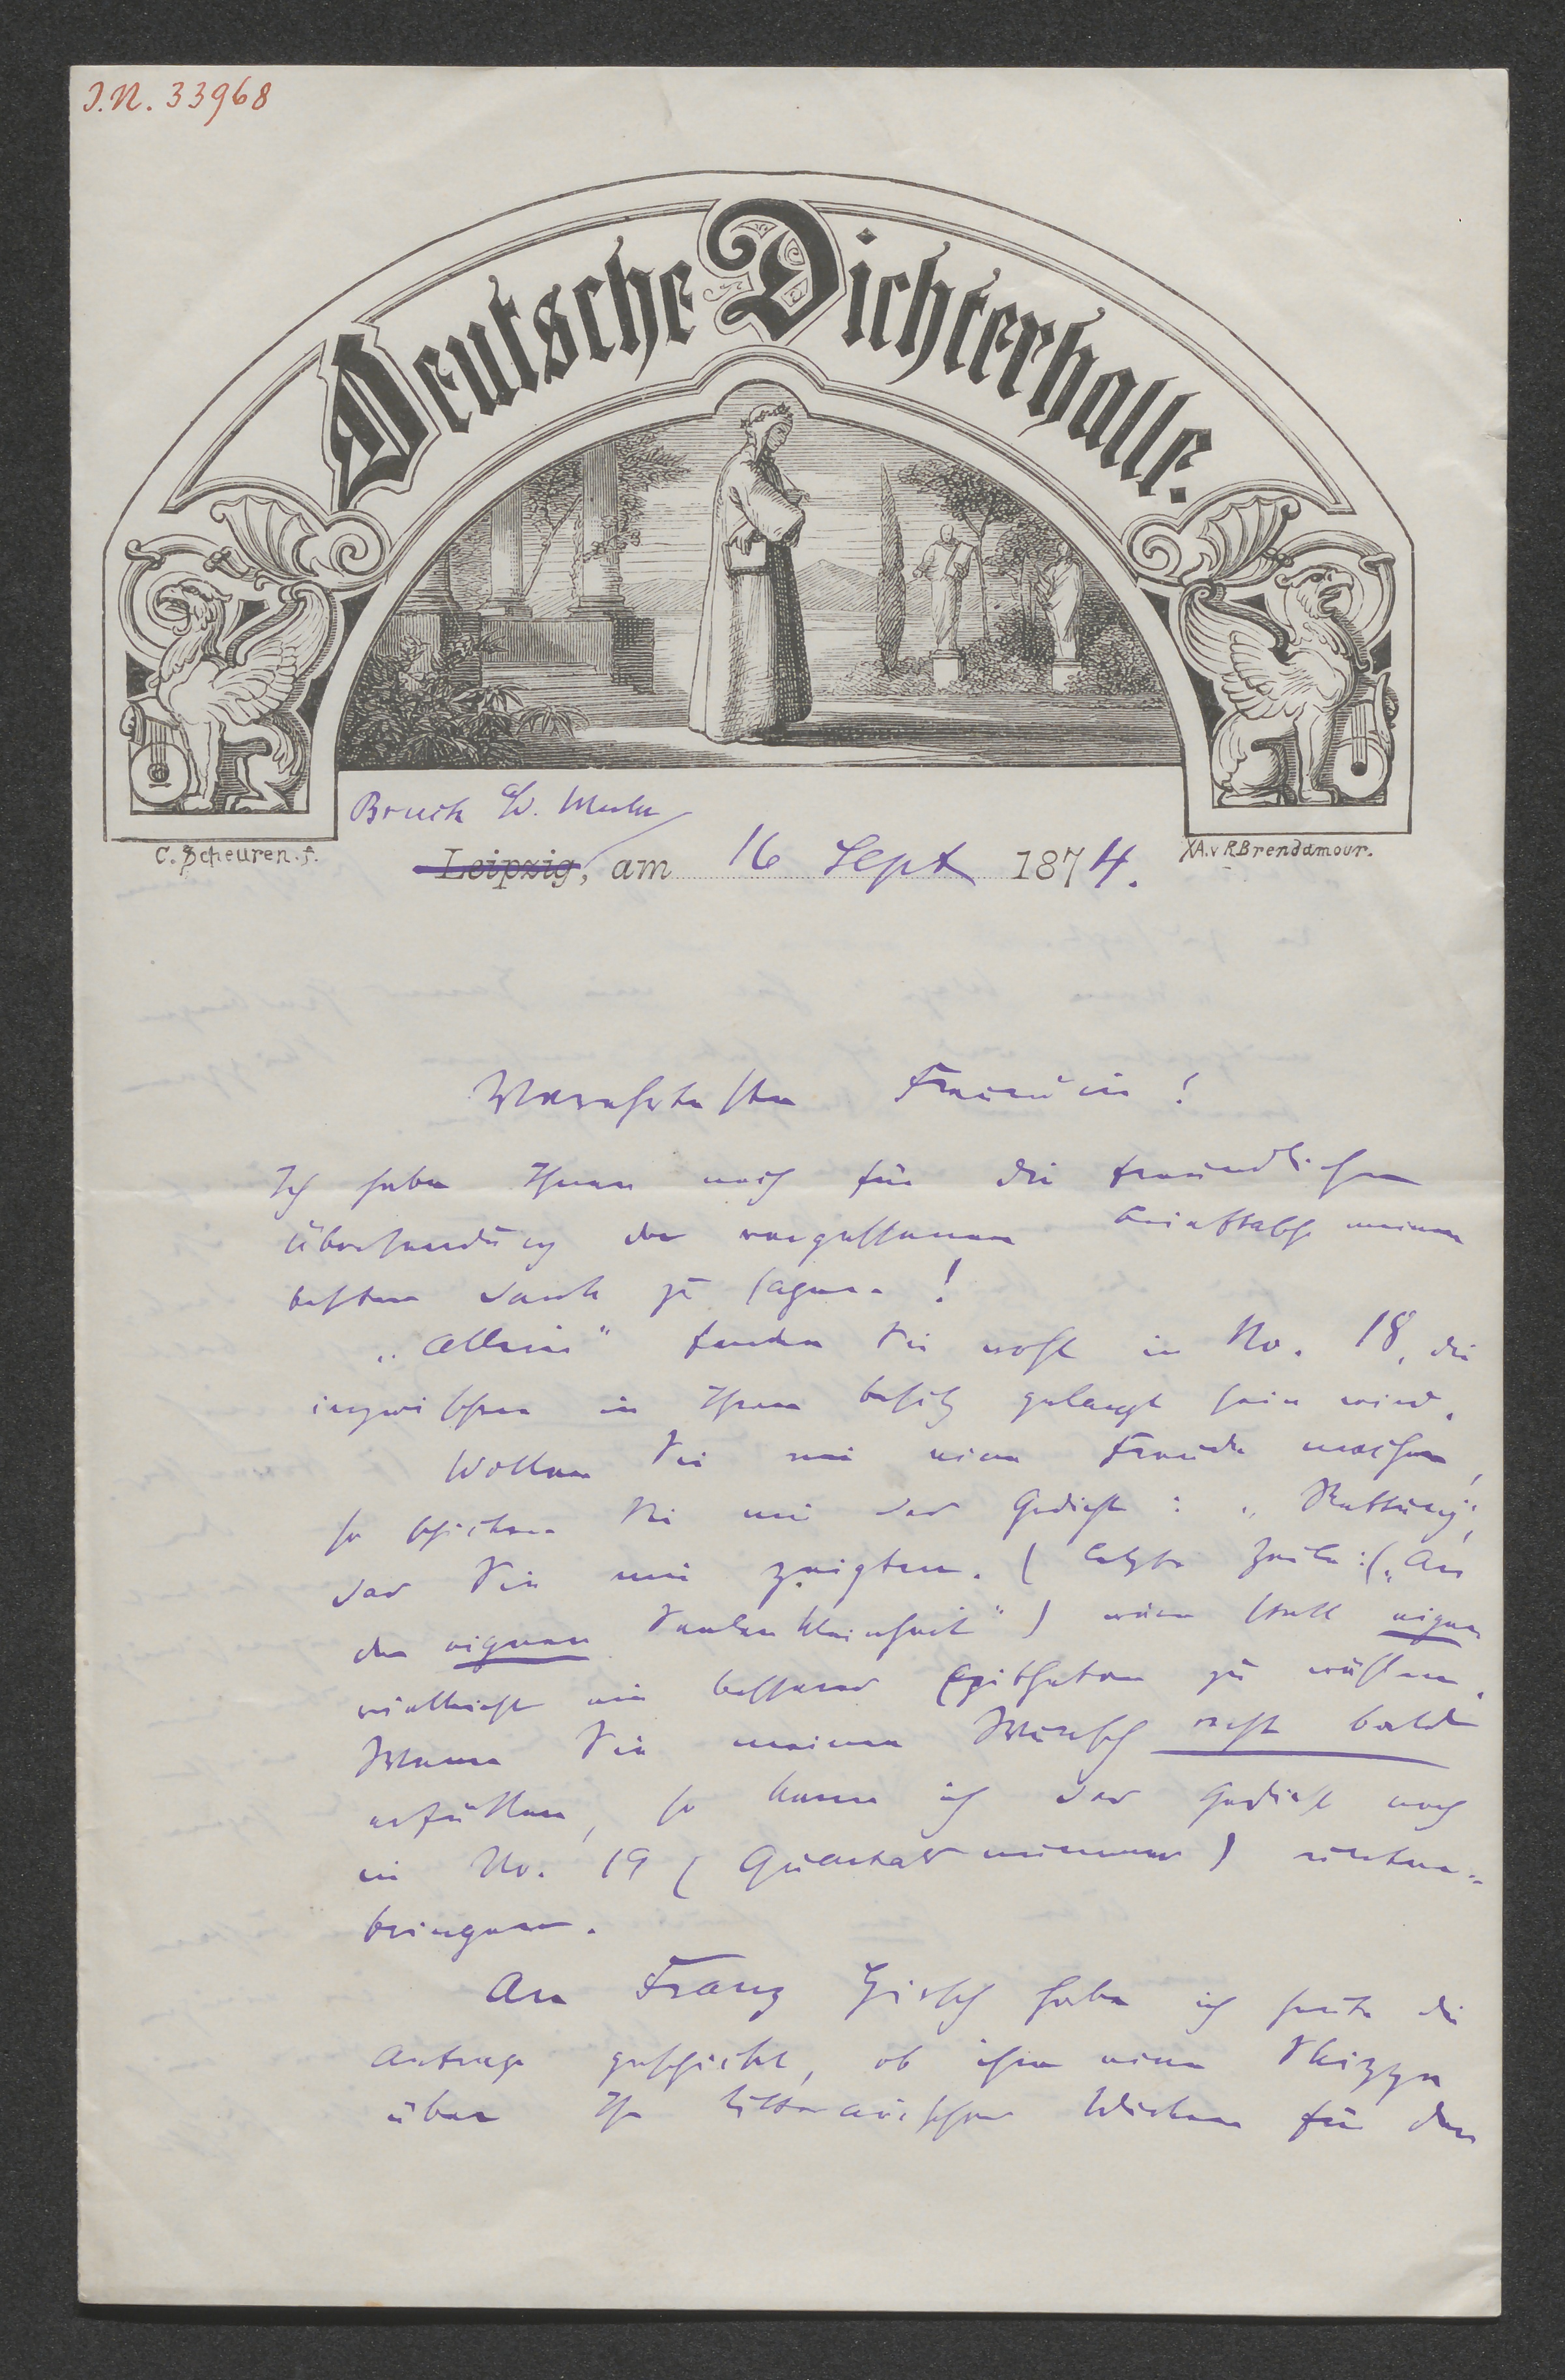 J.N. 33968
Deutsche Dichterhalle.
C. Scheuren. f.
XA. v R Brendamour.
Bruck a/d. Muhr
Leipzig, am 16 Sept 1874.
Verehrteste Freundin!
Ich habe Ihnen noch für die freundliche
Übersendung der vergessenen meinen
besten Dank zu sagen!
„Allein" fanden Sie wohl in No. 18, die
inzwischen in Ihren Besitz gelangt sein wird.
Wollen Sie mir eine Freude machen,
so schicken Sie mir das Gedicht: „Rettung",
das Sie mir zeigten. (letzte Zeile: („An
der eignen Seelen Kleinheit") wäre statt eignen
vielleicht ein besseres Epitheton zu wählen.
Wenn Sie meinen Wunsch recht bald
erfüllen, so kann ich das Gedicht noch
in No. 19 (Quartalsnummer) unter-
bringen.
An Franz Hirsch habe ich heute die
Anfrage geschickt, ob ihm eine Skizze
über Ihr litterarisches Wirken für den